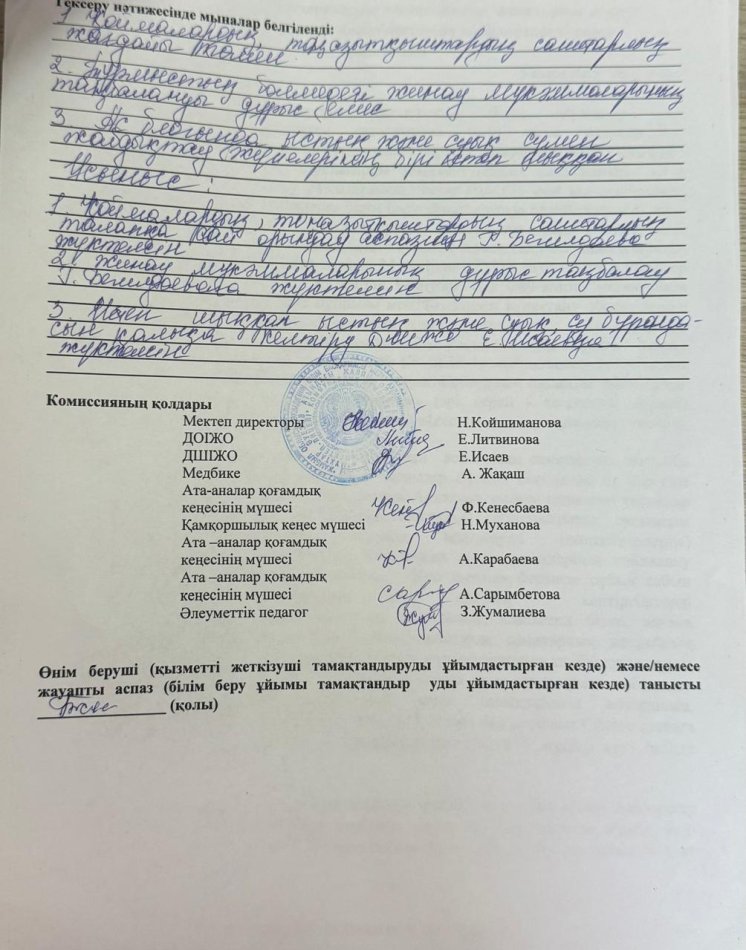 Тексеру нәтижесінде мыналар белгіленді:
1. Қоймалардың, тоңазытқыштардың санитарлық
жағдайы төмен.
2. бөлмедегі жинау мүкәммаларының
таңбалануы дұрыс емес
3. Ас блогында ыстық және суық сумен
жабдықтау жүйелерінің бірі істен шыққан
Ұсыныс:
1. Қоймалардың, тоңазытқыштардың санитарлық
талапқа сай орындау аспазшы
жүктелсін
2. жинау мүкәммаларының дұрыс таңбалау
жүктелсін
3. Істен шыққан ыстық және суық су бұранда-
сын қалыпқа келтіру ДШІЖО Е. Исаевқа
жүктелсін
Комиссияның қолдары
Мектеп директоры Н.Койшиманова
ДОІЖО Е.Литвинова
ДШІЖО Е.Исаев
Медбике А. Жақаш
Ата-аналар қоғамдық
кеңесінің мүшесі Ф.Кенесбаева
Қамқоршылық кеңес мүшесі Н.Муханова
Ата –аналар қоғамдық
кеңесінің мүшесі А.Карабаева
Ата –аналар қоғамдық
кеңесінің мүшесі А.Сарымбетова
Әлеуметтік педагог З.Жумалиева
Өнім беруші (қызметті жеткізуші тамақтандыруды ұйымдастырған кезде) және/немесе
жауапты аспаз (білім беру ұйымы тамақтандыр уды ұйымдастырған кезде) танысты
(қолы)